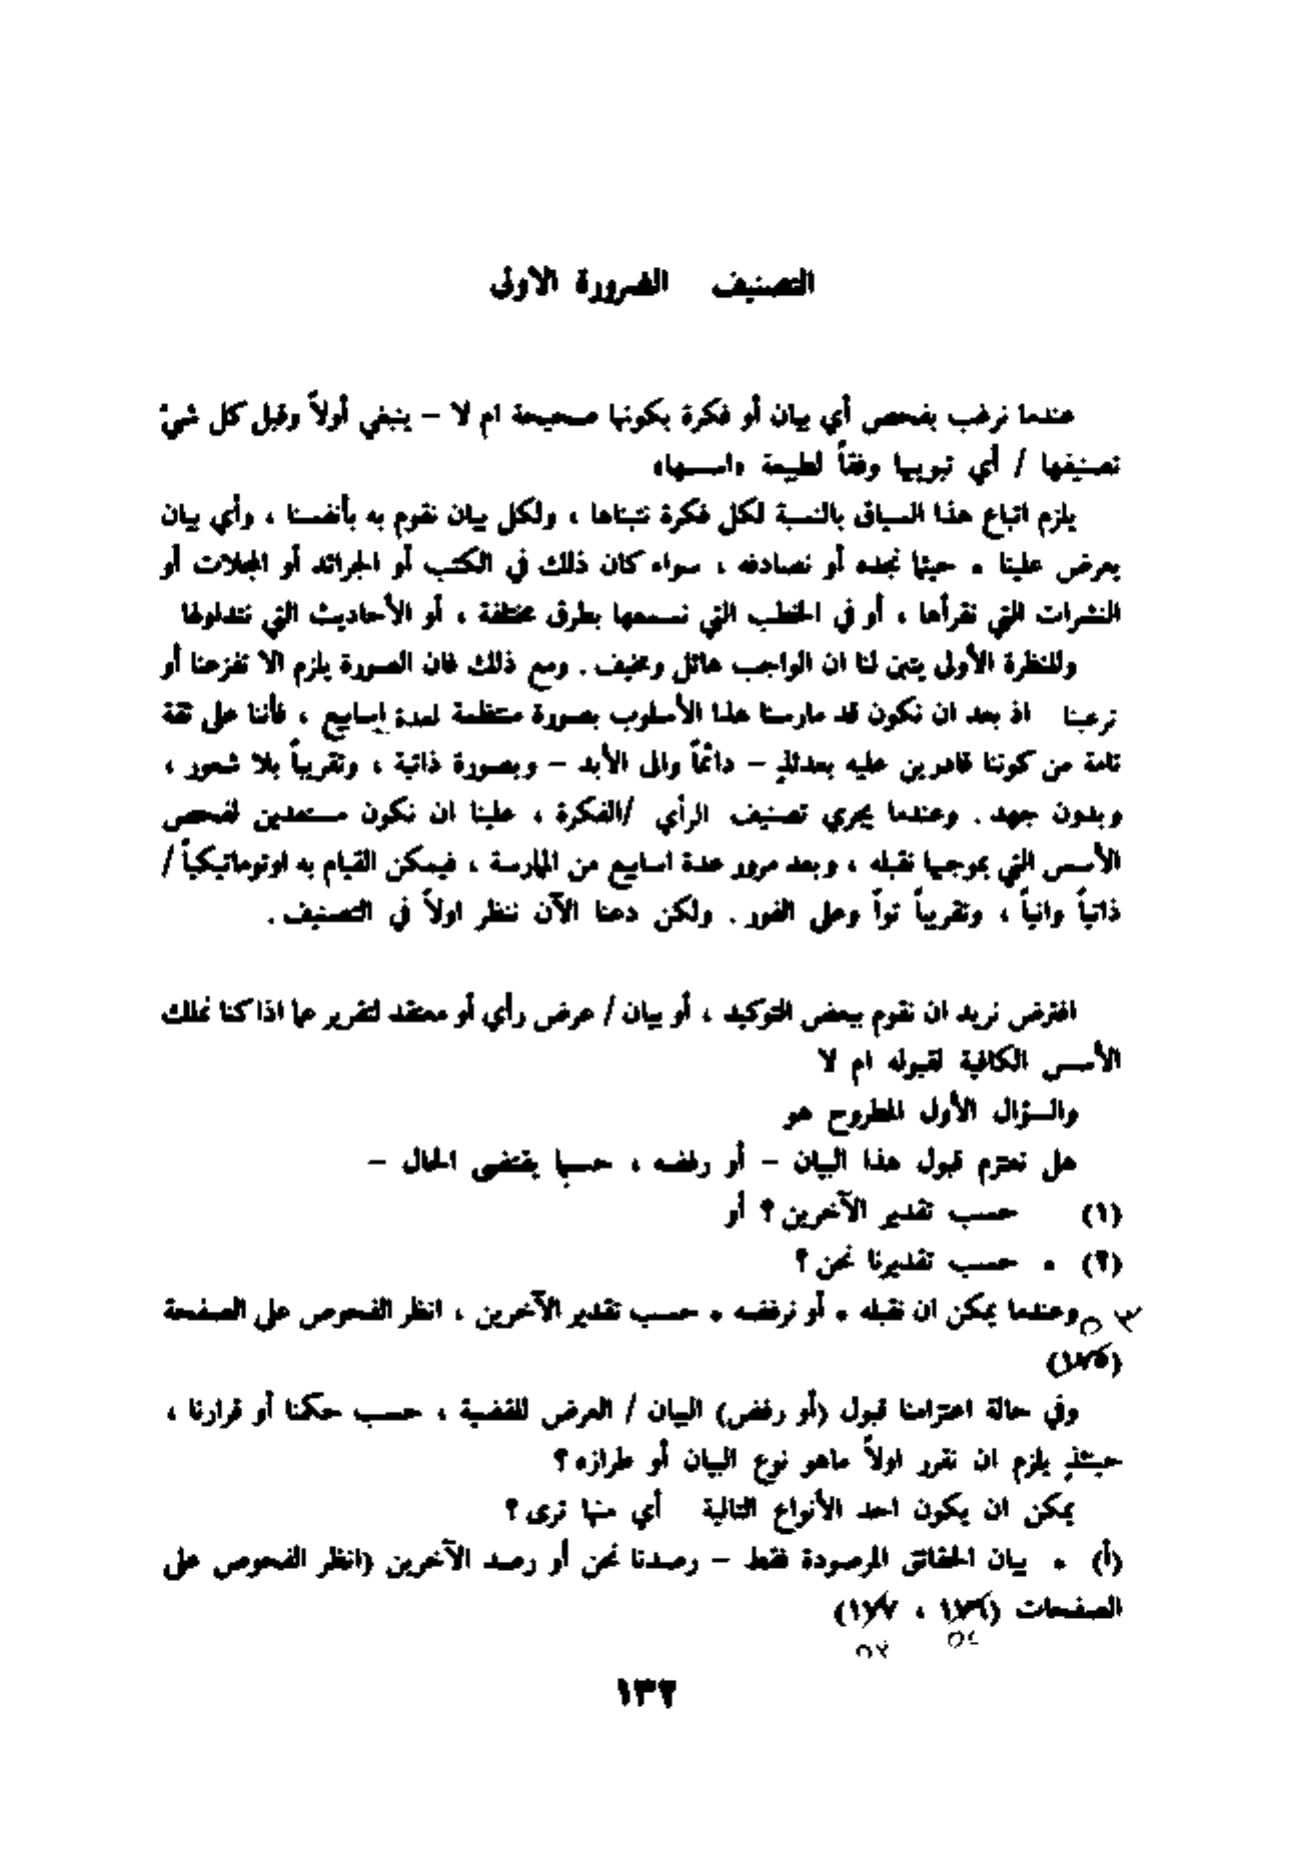 التصنيف الضرورة الاولى
عندما نرغب بفحص أي بيان أو فكرة بكونها صحيحة ام لا – ينبغي أولاً وقبل كل شيء
تصنيفها / أي تبويبها وفقاً لطبيعة «اسسها»
يلزم اتباع هذا السياق بالنسبة لكل فكرة نتبناها ، ولكل بيان نقوم به بأنفسنا ، وأي بيان
يعرض علينا • حيثما نجده أو نصادفه ، سواء كان ذلك في الكتب أو الجرائد أو المجلات أو
النشرات التي نقرأها ، أو في الخطب التي نسمعها بطرق مختلفة ، أو الأحاديث التي نتداولها
وللنظرة الأولى يتبين لنا ان الواجب هائل ومخيف . ومع ذلك فان الصورة يلزم الا تفزعنا أو
ترعبنا اذ بعد ان نكون قد مارسنا هذا الأسلوب بصورة منتظمة لمدة اسابيع ، فأننا على ثقة
تامة من كوننا قادرين عليه بعدئذٍ – دائماً والى الأبد – وبصورة ذاتية ، وتقريباً بلا شعور ،
وبدون جهد . وعندما يجري تصنيف الرأي /الفكرة ، علينا ان نكون مستعدين لفحص
الأسس التي بموجبها نقبله ، وبعد مرور عدة اسابيع من المارسة ، فيمكن القيام به اوتوماتيكياً /
ذاتياً وانياً ، وتقريباً تواً وعلى الفور . ولكن دعنا الآن ننظر اولاً في التصنيف .
افترض نريد ان نقوم ببعض التوكيد ، أو بيان / عرض رأي أو معتقد لتقرير عما اذا كنا نملك
الأسس الكافية لقبوله ام لا
والسؤال الأول المطروح هو
هل نعتزم قبول هذا البيان – أو رفضه ، حسبما يقتضى الحال –
(١) حسب تقدير الآخرين ؟ أو
(٢) • حسب تقديرنا نحن ؟
وعندما يمكن ان نقبله • أو نرفضه • حسب تقدير الآخرين ، انظر الفحوص على الصفحة
(١٧٥)
وفي حالة اعتزامنا قبول (أو رفض) البيان / العرض للقضية ، حسب حكمنا أو قرارنا ،
حينئذٍ يلزم ان نقرر اولاً ماهو نوع البيان أو طرازه ؟
يمكن ان يكون احد الأنواع التالية أي منها ترى ؟
(أ) • بيان الحقائق المرصودة فقط – رصدنا نحن أو رصد الآخرين (انظر الفحوص على
الصفحات (١٧٦ ، ١٧٧)
٥٤ ٥٧
١٣٢